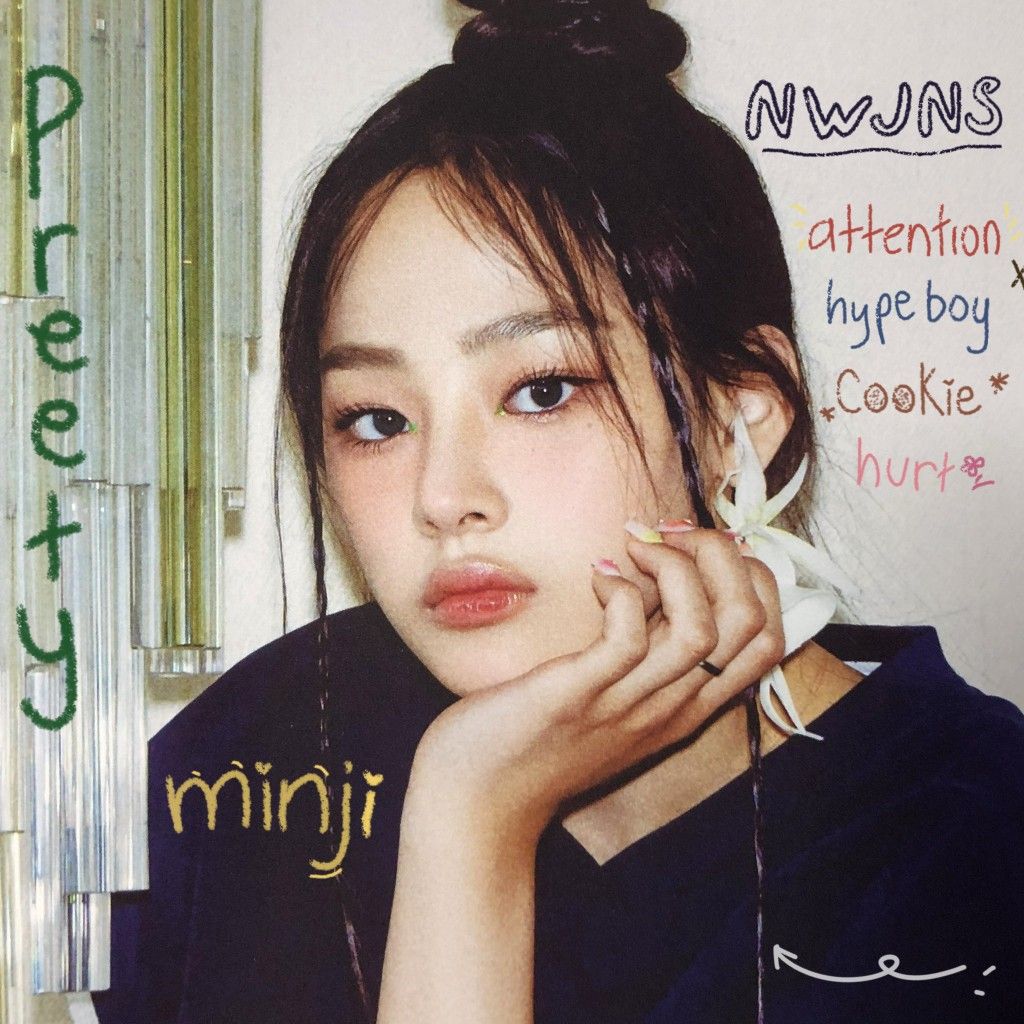 Pretty
NWJNS
attention
hype boy
Cookie
hurt
minji